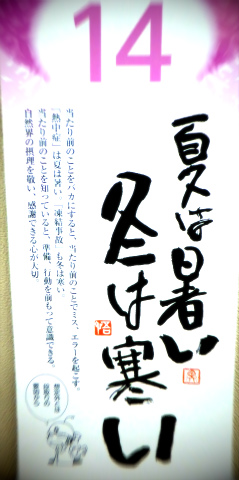 14
夏は暑い
冬は寒い
当たり前のことをバカにすると、当たり前のことでミス、エラーを起こす。
「熱中症」は夏は暑い。「凍結事故」も冬は寒い。
当たり前のことを知っていると、準備、行動を前もって意識できる。
自然界の摂理を敬い、感謝できる心が大切。